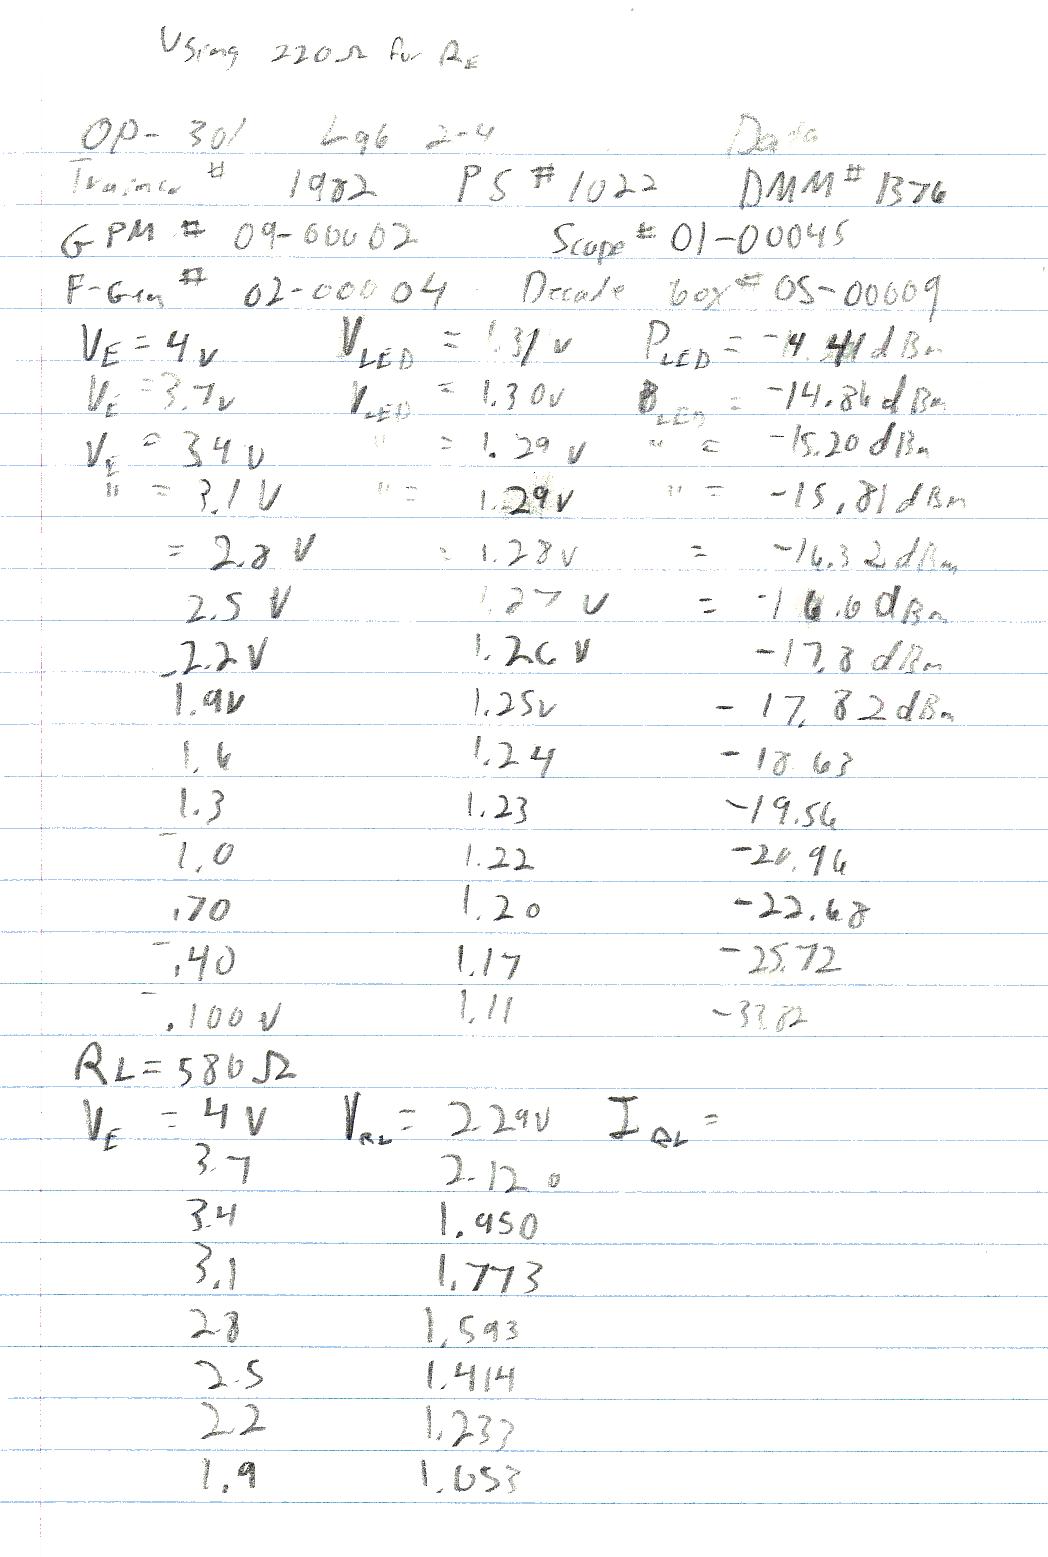 Using 220Ω for RE
OP-301 Lab 2-4 Data
Trainer # 1982 PS # 1022 DMM # 1376
GPM # 09-00002 Scope # 01-00045
F-Gen # 02-00004 Decade box # 05-00009
VE = 4v VLED = 1.31 v PLED = -14.41 dBm
VE = 3.7v VLED = 1.30v PLED = -14.86 dBm
VE = 3.4 v = 1.29 v " = -15.20 dBm
" = 3.1 V " = 1.29v " = -15.81 dBm
= 2.8 V = 1.28v = -16.32 dBm
2.5 V 1.27 v = -16.6 dBm
2.2 V 1.26 v -17.8 dBm
1.9v 1.25v -17.82 dBm
1.6 1.24 -18.63
1.3 1.23 -19.56
1.0 1.22 -20.96
.70 1.20 -22.68
.40 1.17 -25.72
.100 v 1.11 -33.82
RL = 586 Ω
VE = 4 v VRL = 2.29v IRL =
3.7 2.120
3.4 1.950
3.1 1.773
2.8 1.593
2.5 1.414
2.2 1.233
1.9 1.053